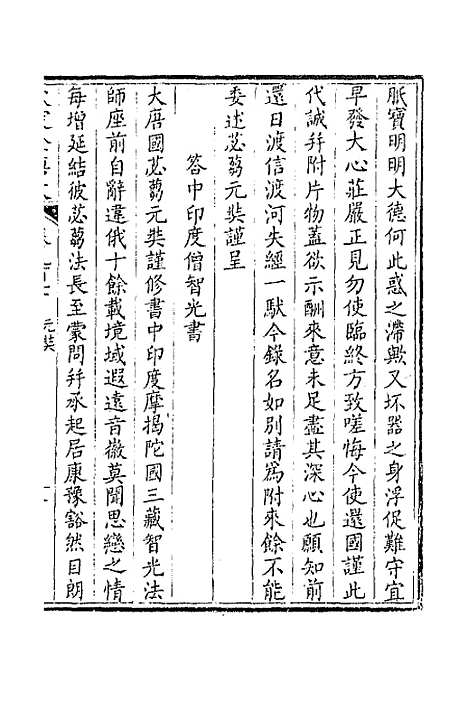 胝寶明明大德何此惑之滯歟又坏器之身浮促難守宜
早發大心莊嚴正見勿使臨終方致嗟悔今使還國謹此
代誠幷附片物蓋欲示酬來意未足盡其深心也願知前
還日渡信渡河失經一馱今錄名如別請爲附來餘不能
委述苾蒭元奘謹呈
答中印度僧智光書
大唐國苾蒭元奘謹修書中印度摩揭陀國三藏智光法
師座前自辭違俄十餘載境域遐遠音徽莫聞思戀之情
每增延結彼苾蒭法長至蒙問幷承起居康豫豁然目朗
元奘